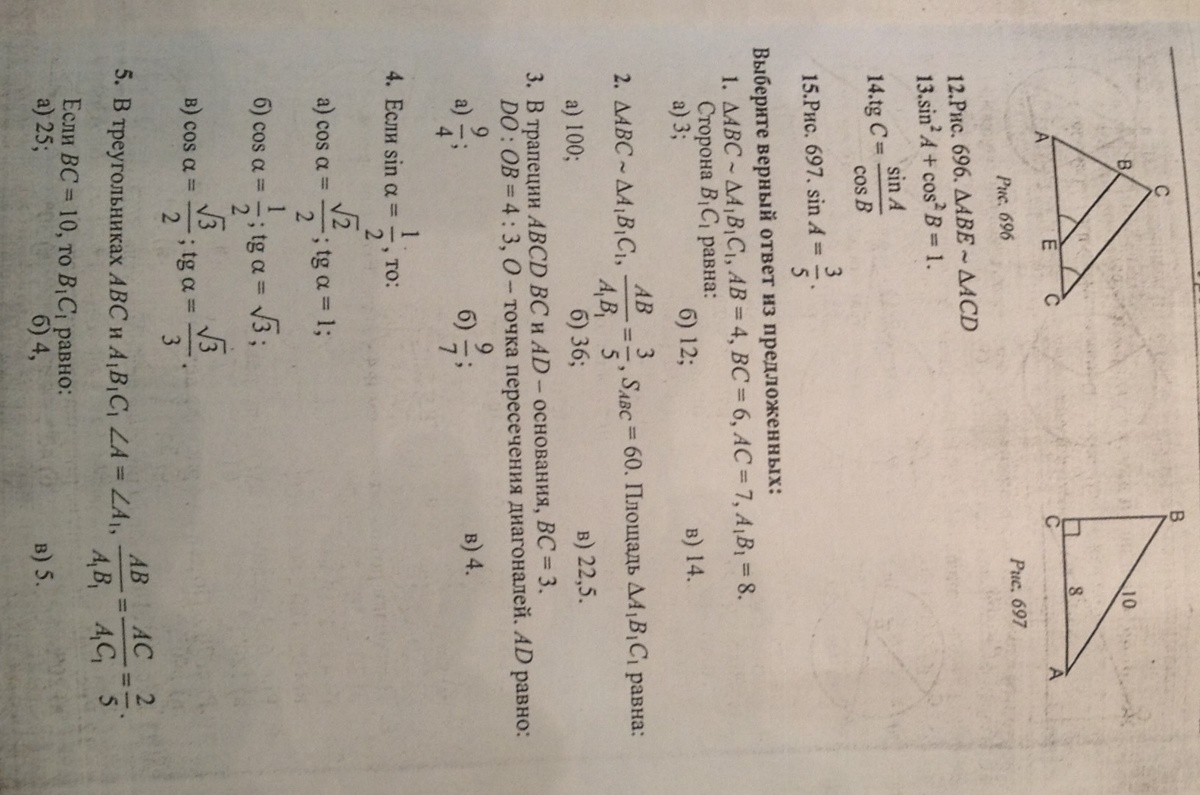 C
B
A
E
C
Рис. 696
B
10
C
8
A
Рис. 697
12.Рис. 696. ΔABE ~ ΔACD
13.sin² A + cos² B = 1.
14.tg C = sin A / cos B
15.Рис. 697. sin A = 3/5.
Выберите верный ответ из предложенных:
1. ΔABC ~ ΔA₁B₁C₁, AB = 4, BC = 6, AC = 7, A₁B₁ = 8.
Сторона B₁C₁ равна:
а) 3; б) 12; в) 14.
2. ΔABC ~ ΔA₁B₁C₁, AB/A₁B₁ = 3/5, S_ABC = 60. Площадь ΔA₁B₁C₁ равна:
а) 100; б) 36; в) 22,5.
3. В трапеции ABCD BC и AD – основания, BC = 3.
DO : OB = 4 : 3, O – точка пересечения диагоналей. AD равно:
а) 9/4; б) 9/7; в) 4.
4. Если sin α = 1/2, то:
а) cos α = √2/2; tg α = 1;
б) cos α = 1/2; tg α = √3;
в) cos α = √3/2; tg α = √3/3.
5. В треугольниках ABC и A₁B₁C₁ ∠A = ∠A₁, AB/A₁B₁ = AC/A₁C₁ = 2/5.
Если BC = 10, то B₁C₁ равно:
а) 25; б) 4, в) 5.